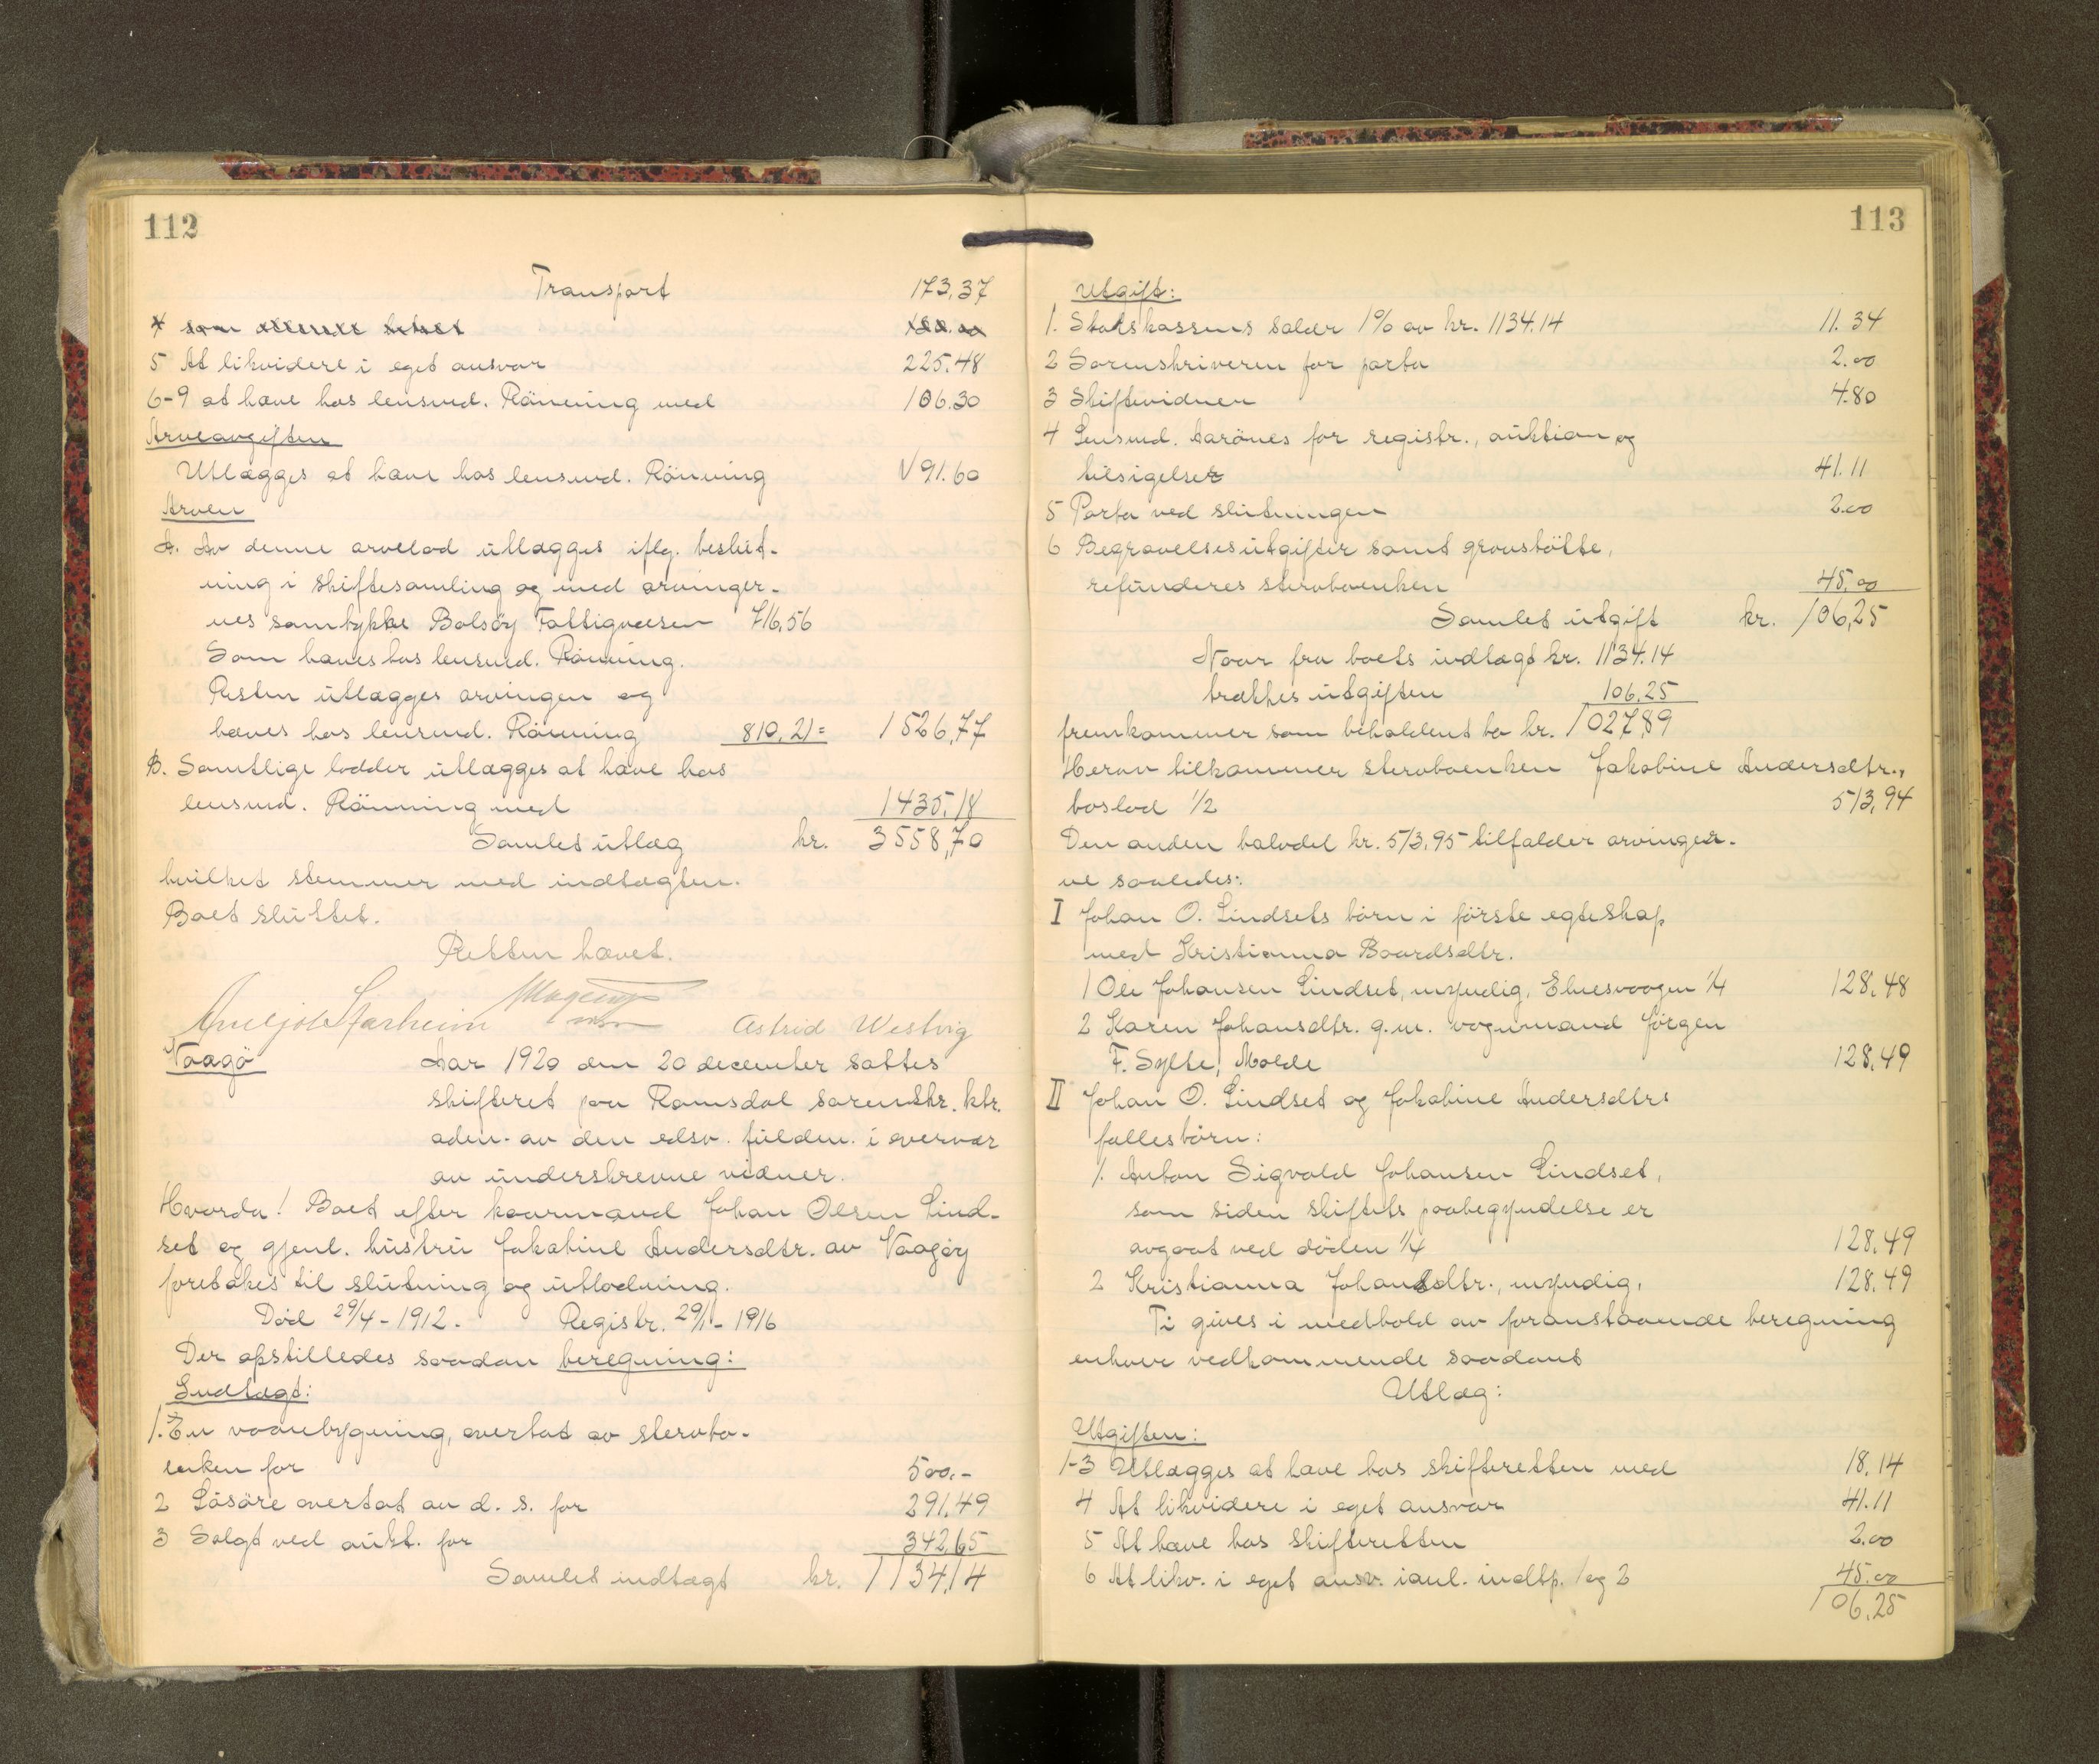 112
Transport 173,37
5 At likvidere i eget ansvar 225.48
6-9 at hæve hos lensmd. Rönning med 106.30
Arveavgiften
Utlægges at hæve hos lensmd. Rönning √ 91.60
Arven
A. Av denne arvelod utlægges iflg. beslut-
ning i skiftesamling og med arvinger-
nes samtykke Bolsöy Fattigvæsen 716,56
Som hæves hos lensmd. Rönning.
Resten utlægges arvingen og
hæves hos lensmd. Rönning 810,21 = 1526,77
B. Samtlige lodder utlægges at hæve hos
lensmd. Rönning med 1435,18
Samlet utlæg kr. 3558,70
hvilket stemmer med indtægten.
Boet sluttet.
Retten hævet.
Astrid Westvig
Vaagö Aar 1920 den 20 december sattes
skifteret paa Romsdal sorenskr. ktr.
adm. av den edsv. fuldm. i overvær
av underskrevne vidner.
Hvorda! Boet efter kaarmand Johan Olsen Lind-
set og gjenl. hustru Jakobine Andersdtr. av Vaagöy
foretakes til slutning og utlodning.
Död 29/4 - 1912. Registr. 29/1 - 1916
Der opstilledes saadan beregning:
Indtægt:
1. En vaanbygning, overtat av stervbo-
enken for 500.-
2 Lösöre overtat av d. s. for 291,49
3 Solgt ved aukt. for 342,65
Samlet indtægt kr. 1134,14
113
Utgift:
1. Statskassens salær 1% av kr. 1134.14 11.34
2 Sorenskriveren for porto 2.00
3 Skiftevidner 4.80
4 Lensmd. Aarönes for registr., auktion og
tilsigelser 41.11
5 Porto ved slutningen 2.00
6 Begravelsesutgifter samt gravstötte,
refunderes stervboenken 45.00
Samlet utgift kr. 106,25
Naar fra boets indtægt kr. 1134.14
trækkes utgiften 106.25
fremkommer som beholdent bo kr. 1027,89
Herav tilkommer stervboenken Jakobine Andersdtr.,
boslod 1/2 513,94
Den anden halvdel kr. 513,95 tilfalder arvinger-
ne saaledes:
I Johan O. Lindsets börn i förste egteskap
med Kristianna Baardsdtr.
1 Ole Johansen Lindset, myndig, Elnesvaagen 1/4 128,48
2 Karen Johansdtr. g.m. vognmand Jörgen
F. Sylte, Molde 128,49
II Johan O. Lindset og Jakobine Andersdtrs
fællesbörn:
1. Anton Sigvald Johansen Lindset,
som siden skiftets paabegyndelse er
avgaat ved döden 1/4 128,49
2 Kristianna Johansdtr., myndig, 128,49
Ti gives i medhold av foranstaaende beregning
enhver vedkommende saadant
Utlæg:
Utgiften:
1-3 Utlægges at hæve hos skifteretten med 18,14
4 At likvidere i eget ansvar 41.11
5 At hæve hos skifteretten 2.00
6 At likv. i eget ansv. ianl. indtp. 1 og 2 45.00
106,25